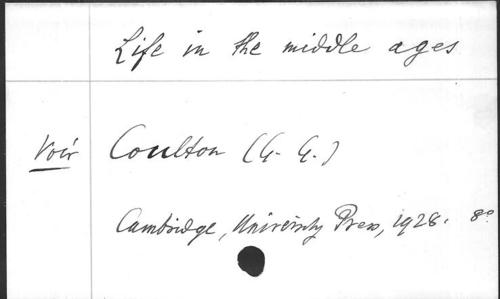 Life in the middle ages
Voir Coulton (G. G.)
Cambridge, University Press, 1928. 8º